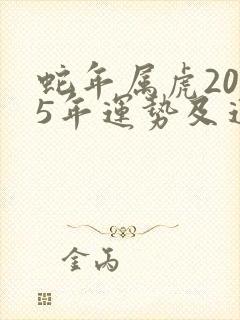 蛇年属虎20
5年運勢及
金丙